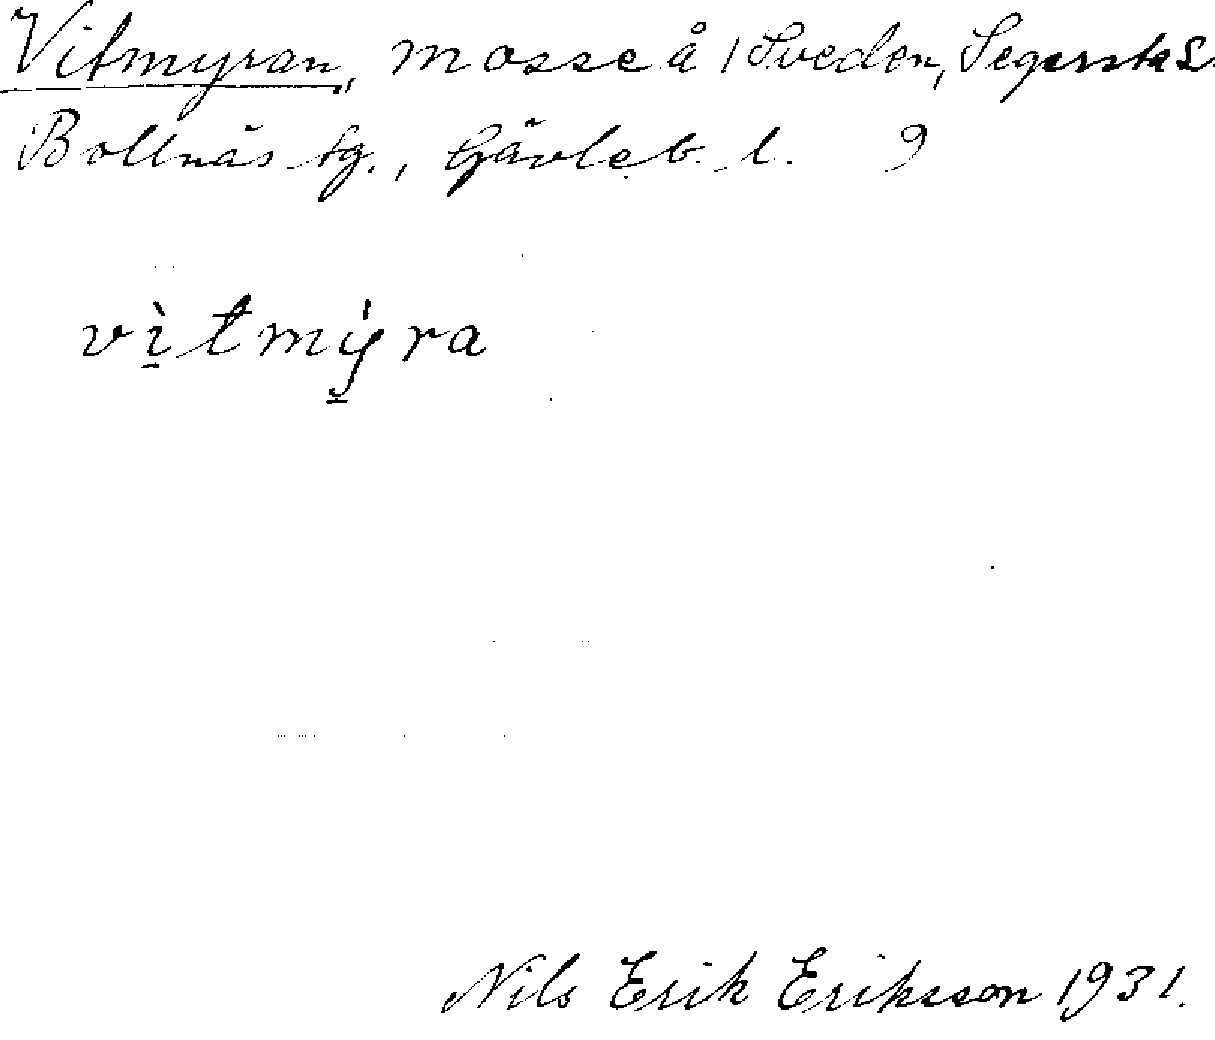 Vitmyran, mosse å 1 Sveden, Segersta s.
Bollnäs tg., Gävleb. l. 9
vìtmýra
Nils Erik Eriksson 1931.